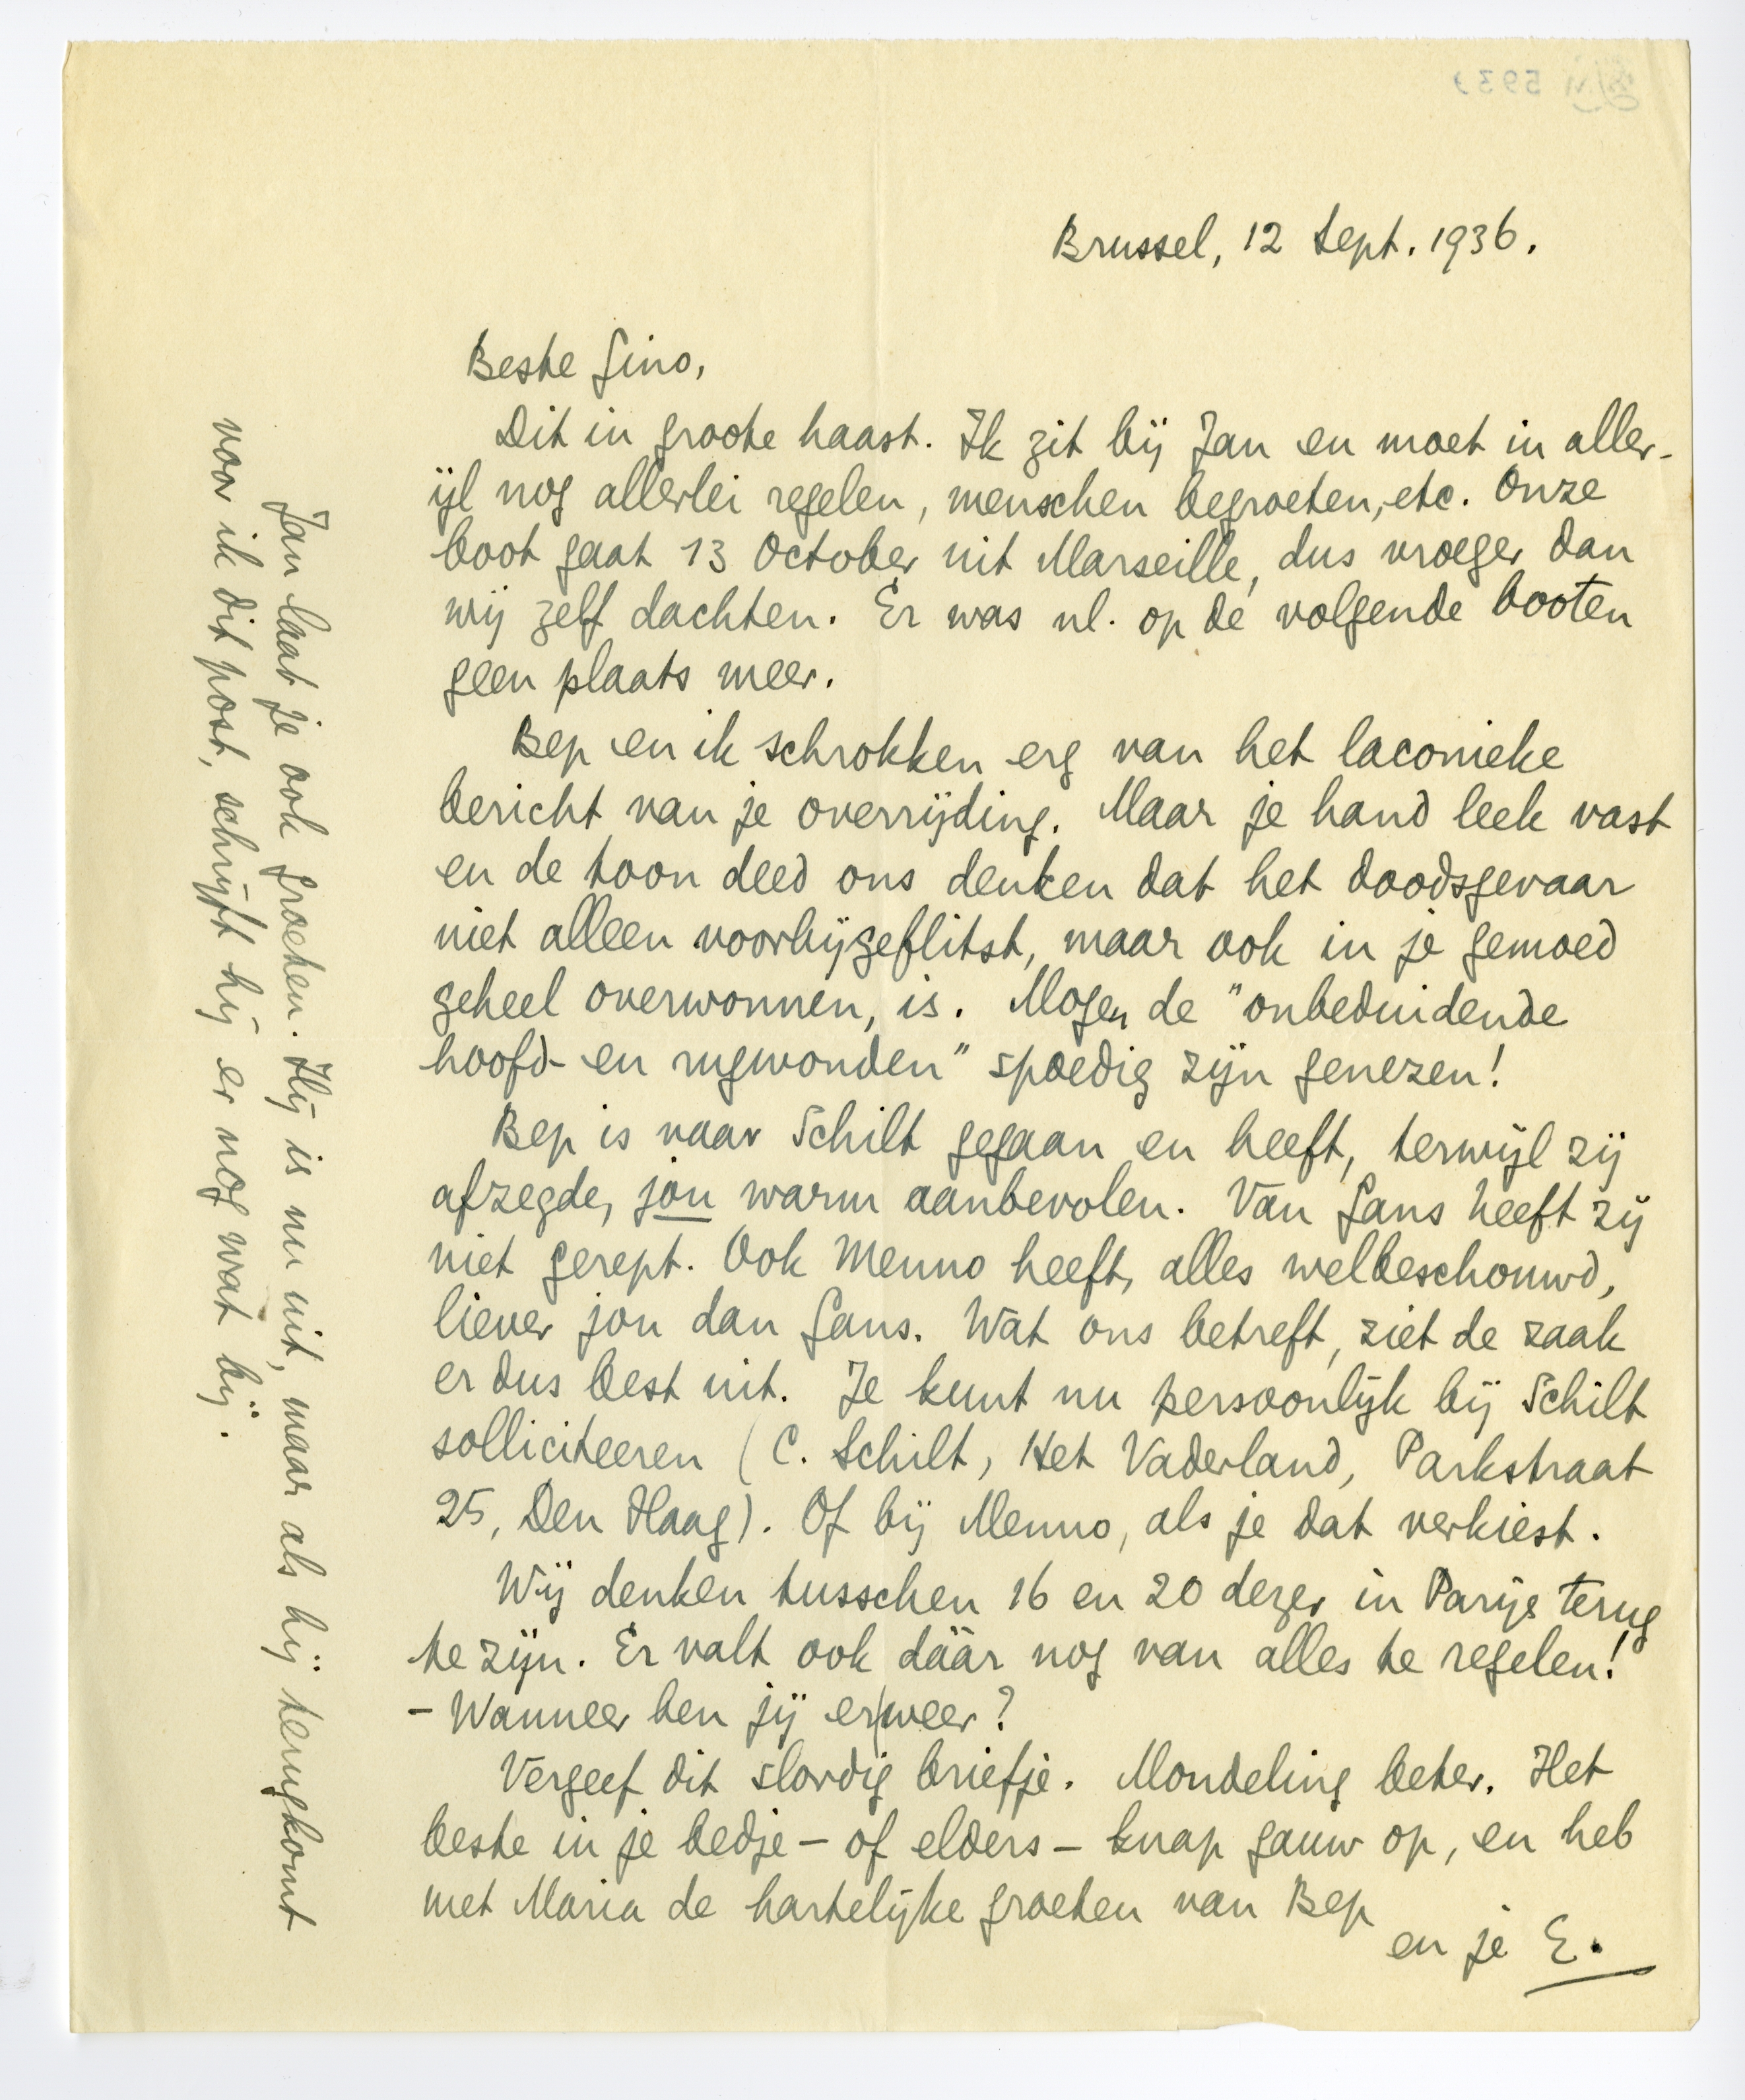 Brussel, 12 Sept. 1936.
Beste Gino,
Dit in groote haast. Ik zit bij Jan en moet in aller-
ijl nog allerlei regelen, menschen begroeten, etc. Onze
boot gaat 13 October uit Marseille, dus vroeger dan
wij zelf dachten. Er was nl. op de volgende booten
geen plaats meer.
Bep en ik schrokken erg van het laconieke
bericht van je overrijding. Maar je hand leek vast
en de toon deed ons denken dat het doodsgevaar
niet alleen voorbijgeflitst, maar ook in je gemoed
geheel overwonnen, is. Mogen de "onbeduidende
hoofd- en rugwonden" spoedig zijn genezen!
Bep is naar Schilt gegaan en heeft, terwijl zij
afzegde, jou warm aanbevolen. Van Gans heeft zij
niet gerept. Ook Menno heeft, alles welbeschouwd,
liever jou dan Gans. Wat ons betreft, ziet de zaak
er dus best uit. Je kunt nu persoonlijk bij Schilt
solliciteeren (C. Schilt, Het Vaderland, Parkstraat
25, Den Haag). Of bij Menno, als je dat verkiest.
Wij denken tusschen 16 en 20 dezer in Parijs terug
te zijn. Er valt ook dáár nog van alles te regelen!
- Wanneer ben jij er weer?
Vergeef dit slordig briefje. Mondeling beter. Het
beste in je bedje - of elders - knap gauw op, en heb
met Maria de hartelijke groeten van Bep
en je E.
Jan laat je ook groeten. Hij is nu uit, maar als hij terugkomt
voor ik dit post, schrijft hij er nog wat bij.